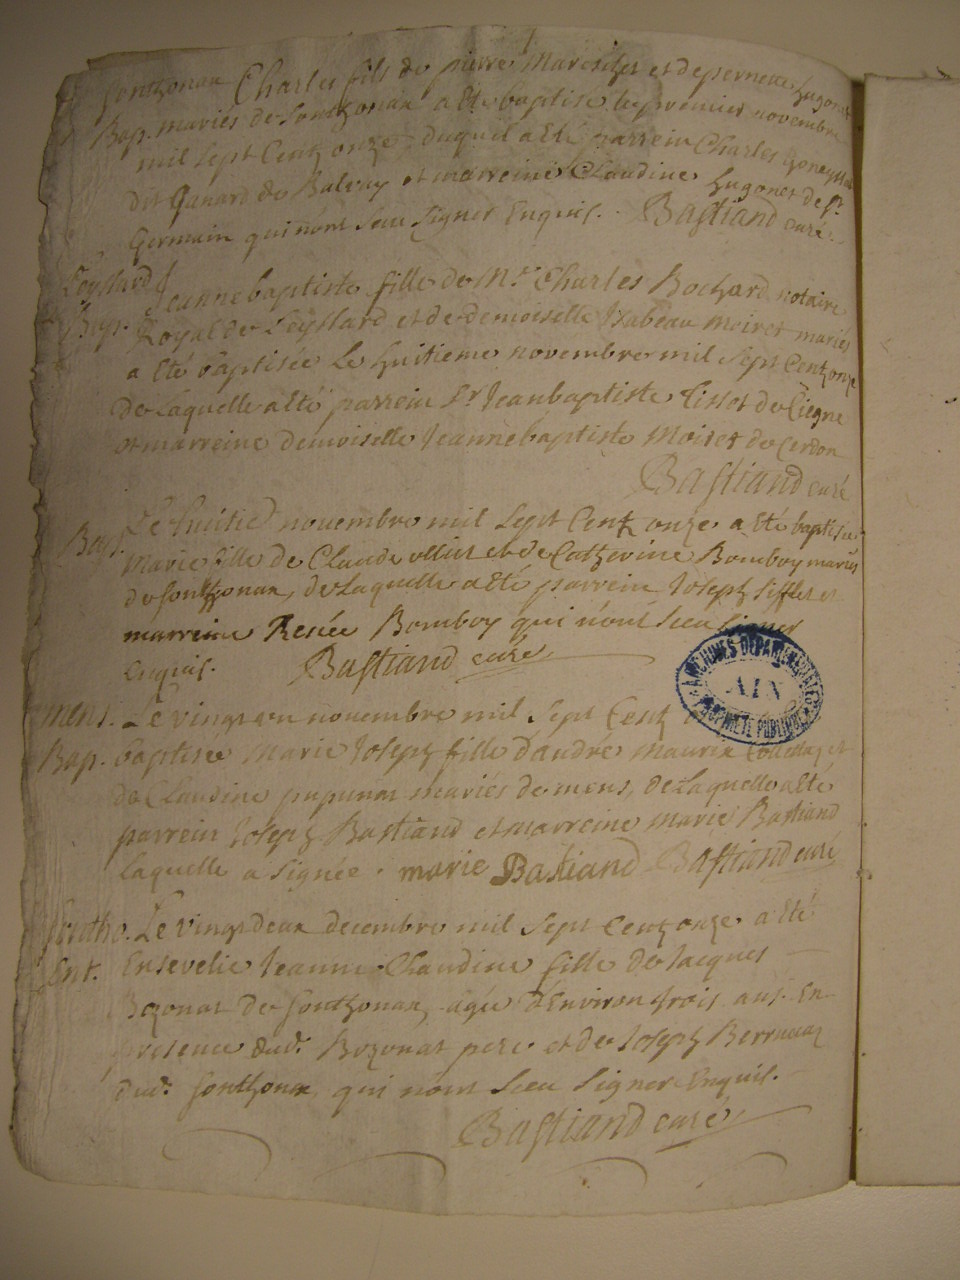 Sonthonax Charles fils de pierre Marechet et de pernette hugonet
Bap. mariés de Sonthonax a Eté baptisé le premier novembre
mil Sept Centz onze, duquel a Eté parrein Charles
dit Ganard de Balvay et marreine Claudine hugonet de St
Germain qui n'ont Sceu Signer Enquis. Bastiand curé
Leyssard Jeanne baptiste fille de Mr. Charles Bochard notaire
Bap. Royal de Leyssard et de demoiselle Isabeau Moiret mariés
a Eté baptisée Le huitieme novembre mil Sept Centz onze
de Laquelle a Eté parrein Sr Jean baptiste Tissot de
et marreine demoiselle Jeanne baptiste Moiret de Cerdon
Bastiand curé
Bap. Le huitie novembre mil Sept Centz onze a Eté baptisée
Marie fille de Claude et de Catherine Bomboy mariés
de Sonthonax, de Laquelle a Eté parrein Joseph Sifflet et
marreine Resée Bomboy qui n'ont Sceu Signer
Enquis. Bastiand curé
mens. Le vingt un novembre mil Sept Centz
Bap. baptisée Marie Joseph fille d'andré maurix et
de Claudine pupunat mariés de mens, de Laquelle a Eté
parrein Joseph Bastiand et marreine Marie Bastiand
Laquelle a Signée. marie Bastiand Bastiand curé
Sontho. Le vingt deux decembre mil Sept Centz onze a Eté
Ent. Ensevelie Jeanne Claudine fille de Jacques
Bozonat de Sonthonax, agée d'Environ trois ans. En
presence dud. Bozonat pere et de Joseph
dud. Sonthonax, qui n'ont Sceu Signer Enquis.
Bastiand curé
ARCHIVES DEPARTEMENTALES
AIN
PROPRIETE PUBLIQUE